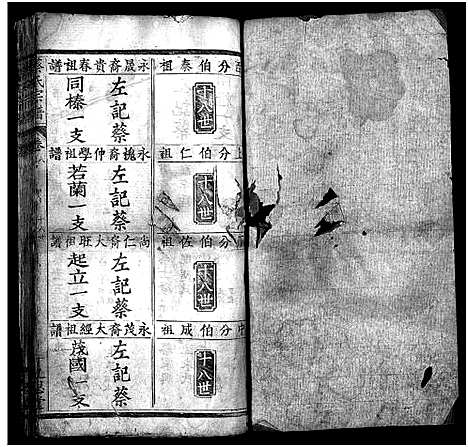 分伯泰祖
十八世
永晟裔貴春祖譜
左記蔡
同榛一支
分伯仁祖
十八世
永槐裔仲學祖譜
左記蔡
若蘭一支
分伯佐祖
十八世
尚仁裔大旺祖譜
左記蔡
起立一支
分伯成祖
十八世
永茂裔大經祖譜
左記蔡
茂國一支
氏宗譜